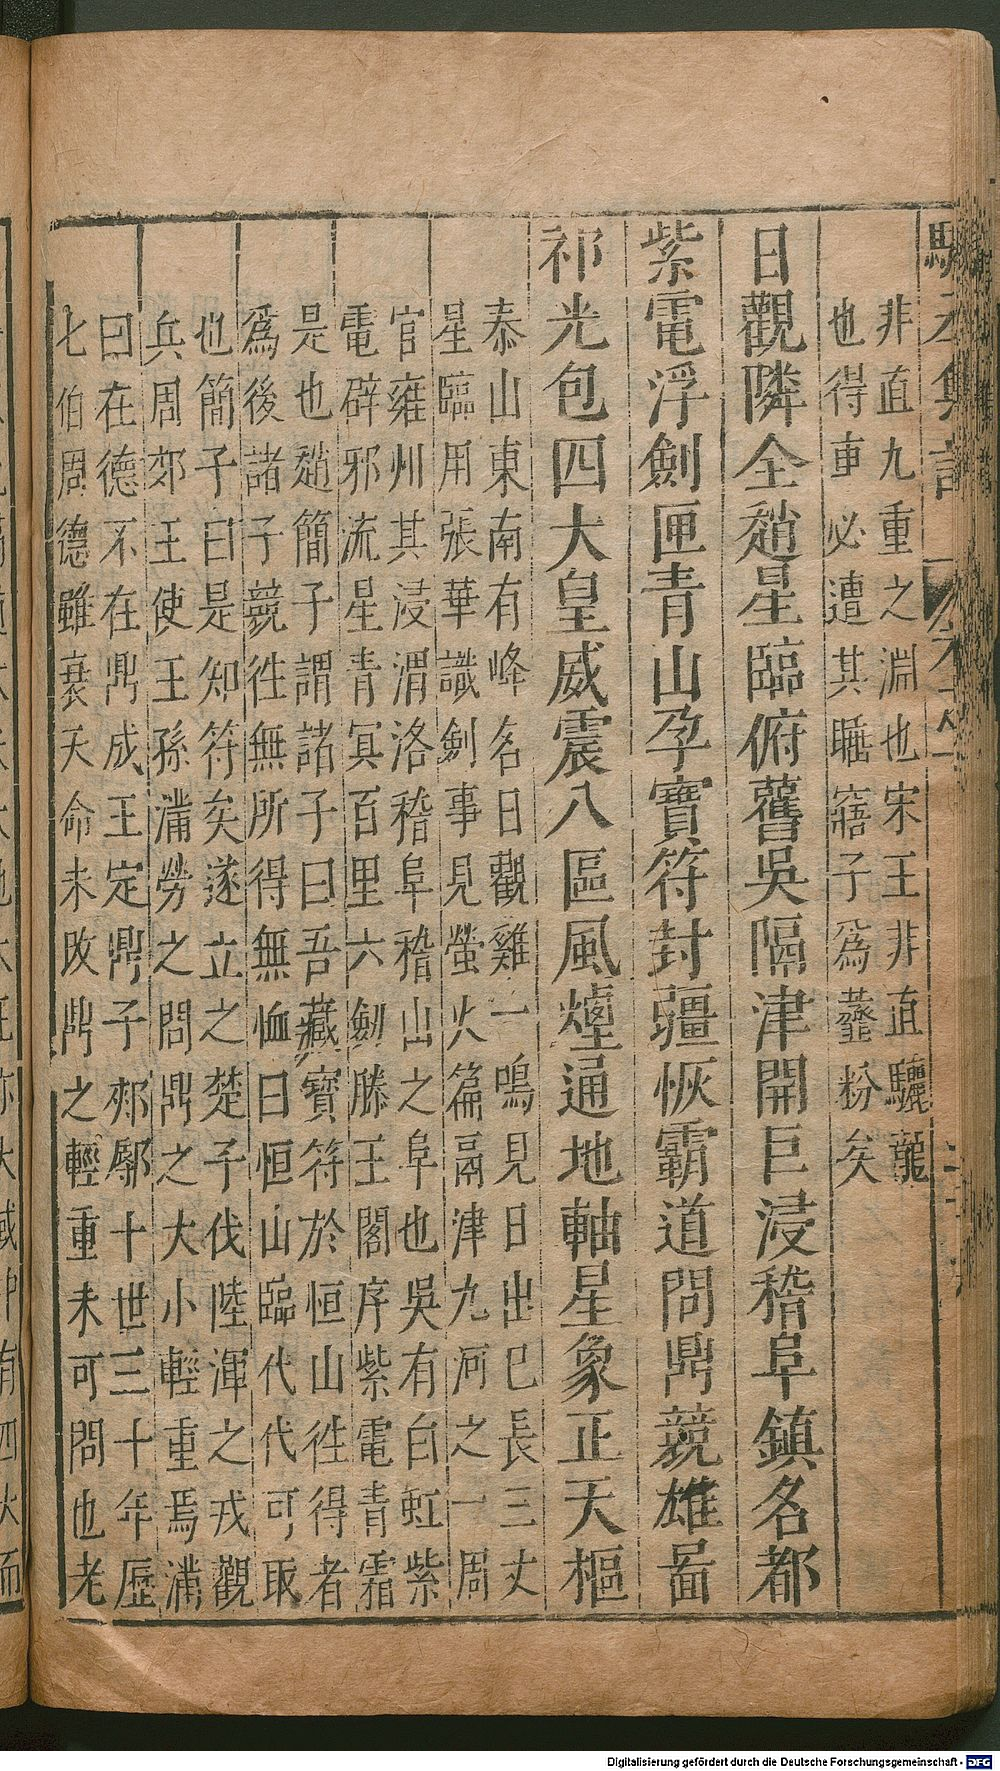 非直九重之淵也宋王非直驪龍
也得車必遭其睡寤子爲虀粉矣
日觀隣全趙星臨俯舊吳隔津開巨浸稽阜鎮名都
紫電浮劍匣青山孕寶符封疆恢霸道問鼎競雄啚
祁光包四大皇威震八區風煙通地軸星象正天樞
泰山東南有峰名日觀雞一鳴見日出巳長三丈
星臨用張華識劍事見螢火篇鬲津九河之一周
官雍州其浸渭洛稽阜稽山之阜也吳有白虹紫
電辟邪流星青冥百里六劍滕王閣序紫電青霜
是也趙簡子謂諸子曰吾藏寶符於恒山徃得者
爲後諸子競徃無所得無恤曰恒山臨代代可取
也簡子曰是知符矣遂立之楚子伐陸渾之戎觀
兵周郊王使王孫滿勞之問鼎之大小輕重焉滿
曰在德不在鼎成王定鼎于郟鄏十世三十年歷
七伯周德雖衰天命未改鼎之輕重未可問也老
Digitalisierung gefördert durch die Deutsche Forschungsgemeinschaft - DFG